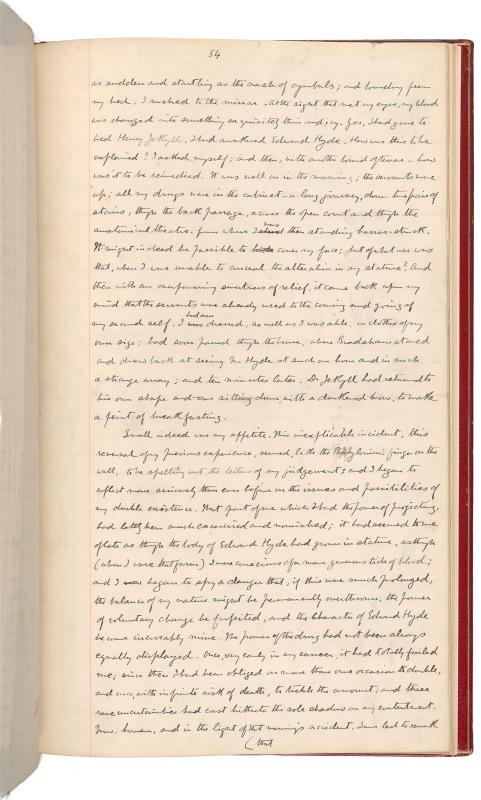 54
as sudden and startling as the crash of cymbals; and bounding from
my bed, I rushed to the mirror. At the sight that met my eyes, my blood
was changed into something exquisitely thin and icy. Yes, I had gone to
bed Henry Jekyll, I had awakened Edward Hyde. How was this to be
explained? I asked myself; and then, with another bound of terror - how
was it to be remedied. It was well on in the morning; the servants were
up; all my drugs were in the cabinet - a long journey, down two pair of
stairs, through the back passage, across the open court and through the
anatomical theatre, from where I was then standing horror-struck.
It might indeed be possible to cover my face; but of what use was
that, when I was unable to conceal the alteration in my stature? And
then with an overpowering sweetness of relief, it came back upon my
mind that the servants were already used to the coming and going of
my second self. I had soon dressed, as well as I was able, in clothes of my
own size; had soon passed through the house, where Bradshaw stared
and drew back at seeing Mr Hyde at such an hour and in such
a strange array; and ten minutes later, Dr Jekyll had returned to
his own shape and was sitting down, with a darkened brow, to make
a feint of breakfasting.
Small indeed was my appetite. This inexplicable incident, this
reversal of my previous experience, seemed, like the Babylonian finger on the
wall, to be spelling out the letters of my judgement; and I began to
reflect more seriously than ever before on the issues and possibilities of
my double existence. That part of me which I had the power of projecting,
had lately been much exercised and nourished; it had seemed to me
of late as though the body of Edward Hyde had grown in stature, as though
(when I wore that form) I were conscious of a more generous tide of blood;
and I began to spy a danger that, if this were much prolonged,
the balance of my nature might be permanently overthrown, the power
of voluntary change be forfeited, and the character of Edward Hyde
become irrevocably mine. The power of the drug had not been always
equally displayed. Once, very early in my career, it had totally failed
me; since then I had been obliged on more than one occasion to double,
and once, with infinite risk of death, to treble the amount; and these
rare uncertainties had cast hitherto the sole shadow on my contentment.
Now, however, and in the light of that morning's accident, I was led to remark
(that